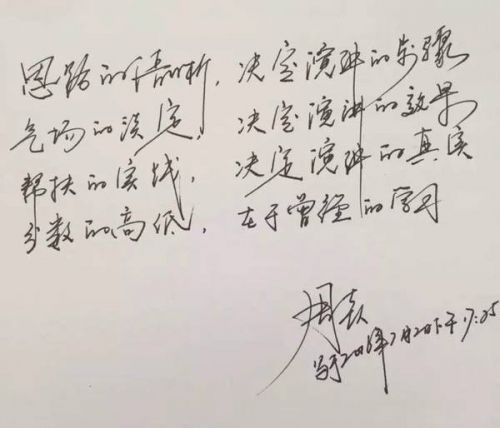 思路的清晰,决定演讲的步骤
气场的淡定,决定演讲的效果
帮扶的实战,决定演讲的真实
分数的高低,在于曾经的学习
周
写于2016年7月2日下午17:25